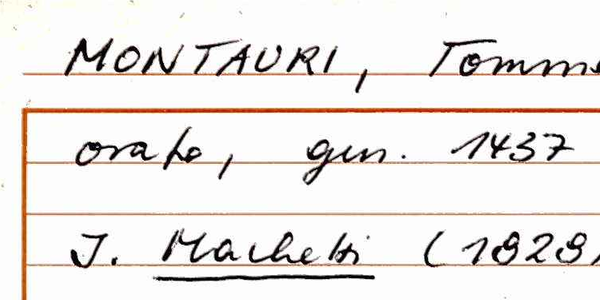 MONTAURI, Tomm
orafo, gen. 1437
J. Machetti (1929)